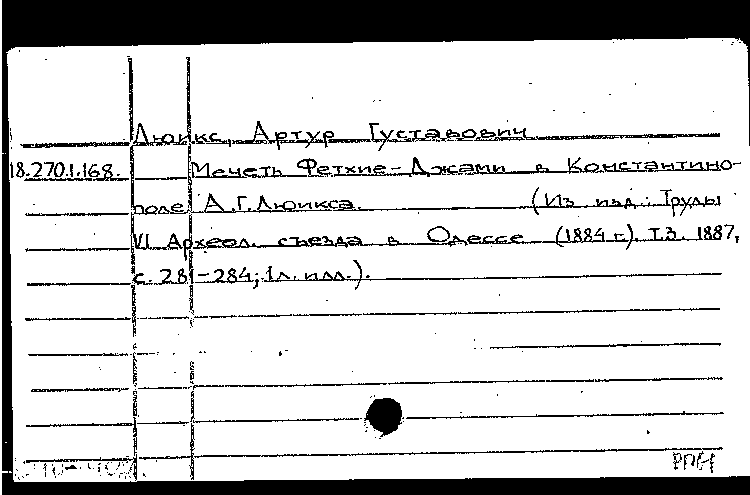 Люикс, Артур Густавович
18.270.1.168. Мечеть Фетхие-Джами в Константино-
поле А.Г. Люикса. (Из изд.: Труды
VI Археол. съезда в Одессе (1884 г.). Т.3. 1887,
с. 281-284; 1л. илл.).